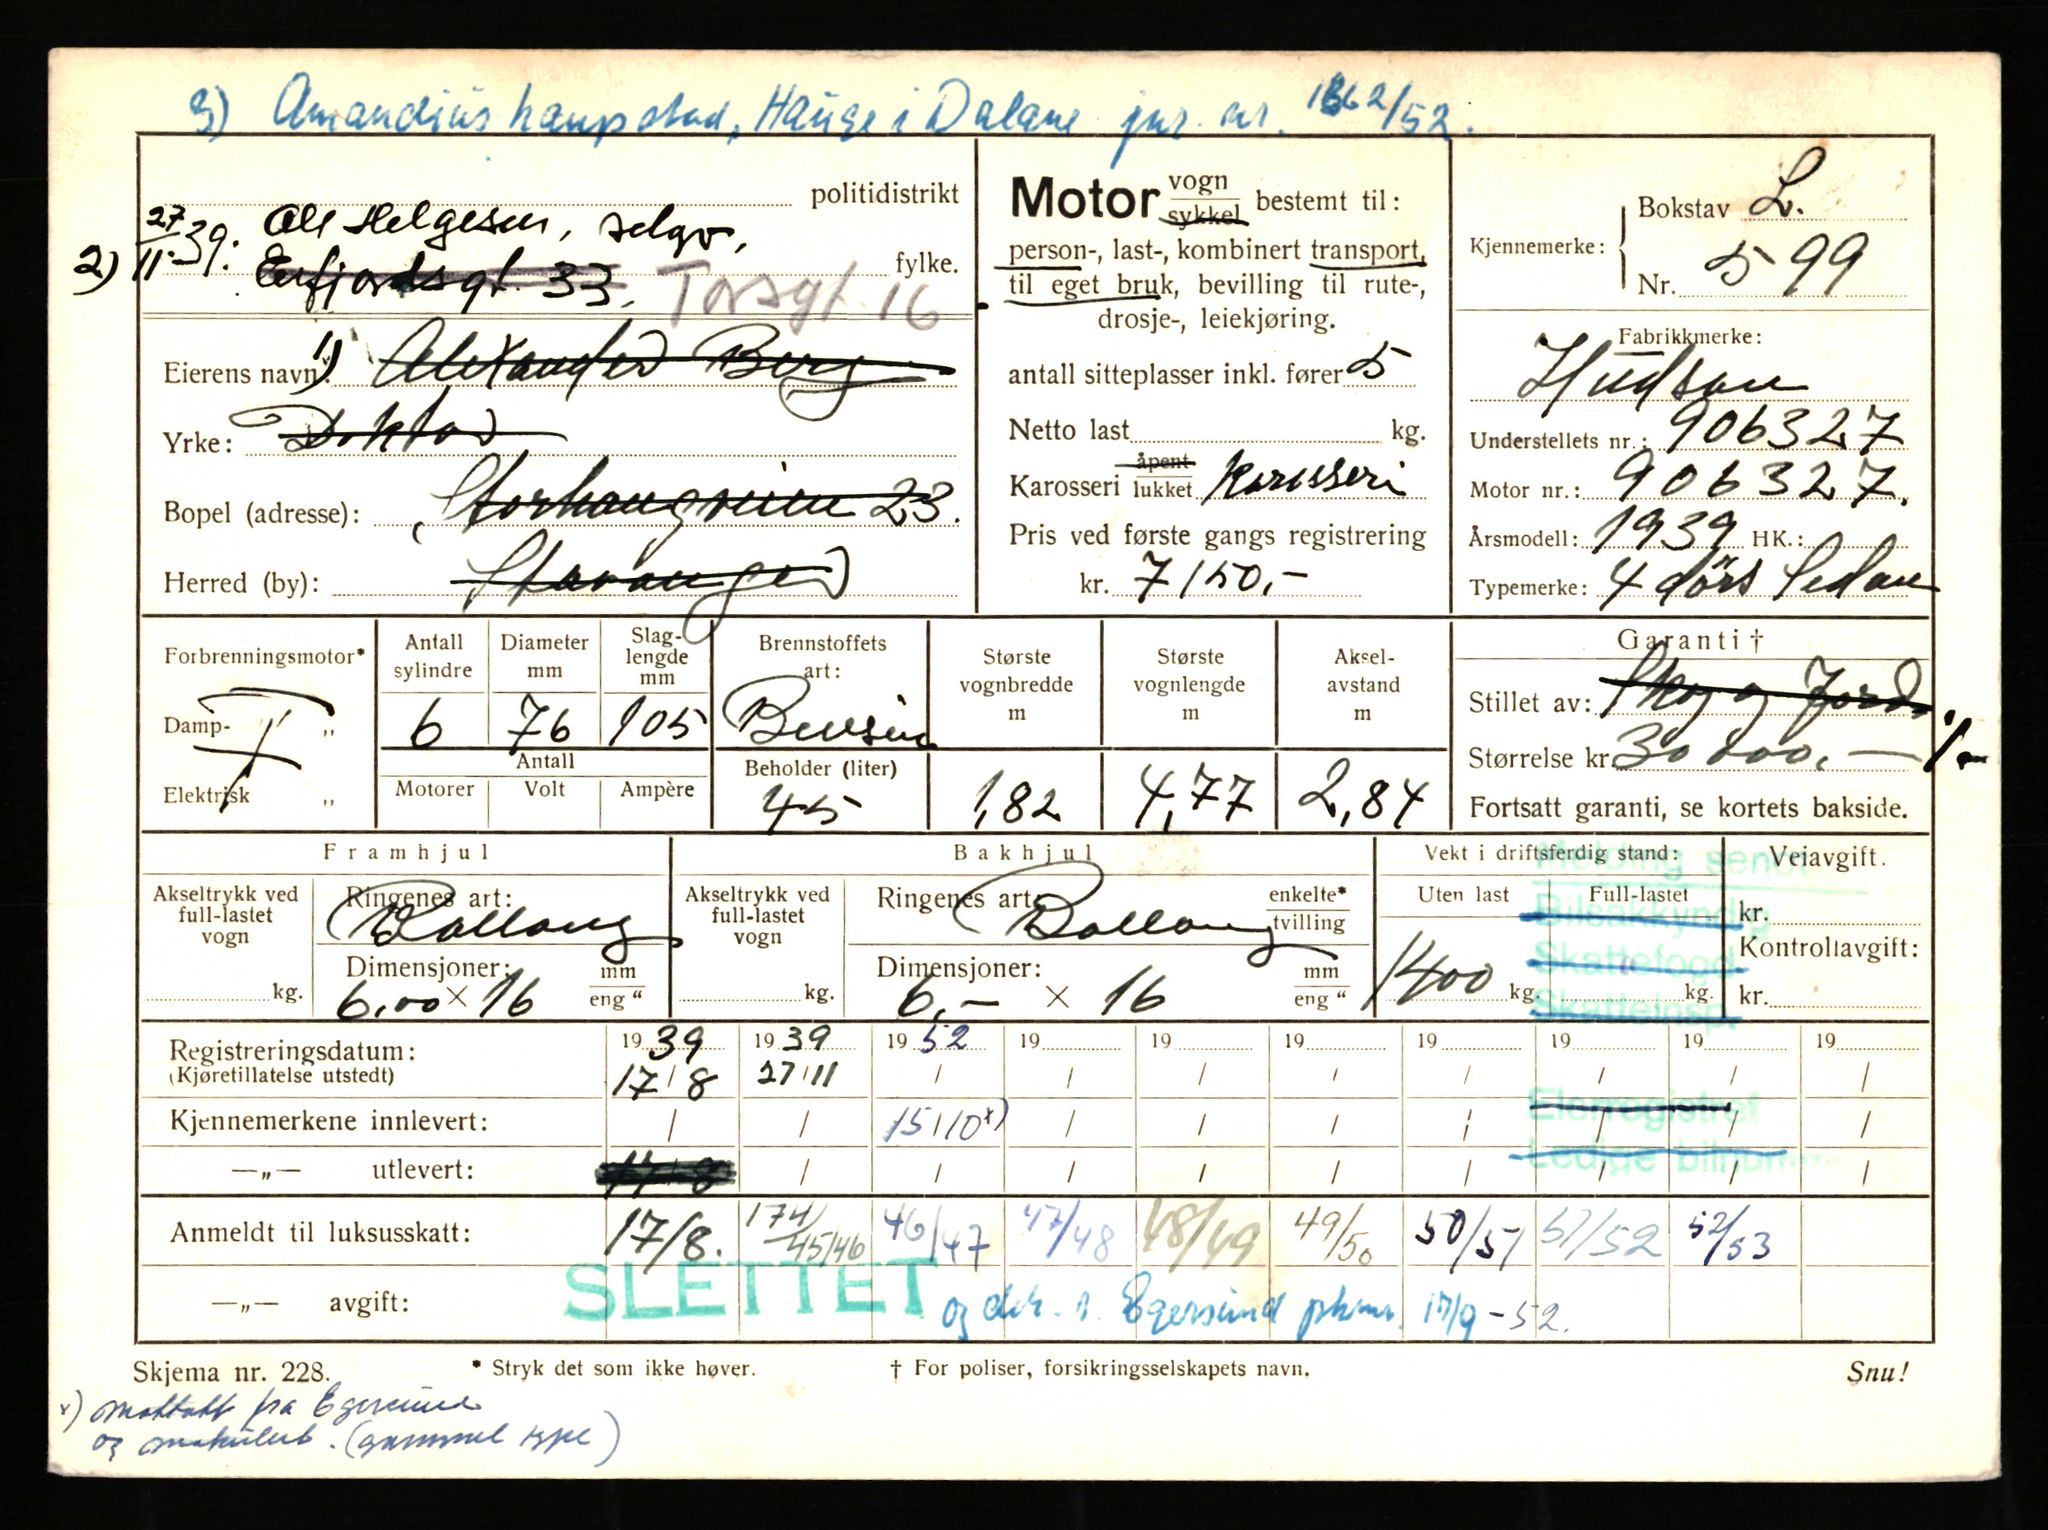 3) Amandius Haupstad, Hauge i Dalane jnr. nr. 1662/52.
politidistrikt
2) 27/11-39. Ole Helgesen, selgv,
Erfjordsgt. 33. Torsgt. 16 fylke.
Eierens navn: 1) Alexander Berg
Yrke: Doktor
Bopel (adresse): Storhaugveien 23.
Herred (by): Stavanger
Motor vogn
sykkel bestemt til:
person-, last-, kombinert transport,
til eget bruk, bevilling til rute-,
drosje-, leiekjøring.
antall sitteplasser inkl. fører 5
Netto last kg.
Karosseri åpent
lukket Karosseri
Pris ved første gangs registrering
kr. 7150,-
Kjennemerke:
Bokstav L.
Nr. 599
Fabrikkmerke:
Hudson
Understellets nr.: 906327
Motor nr.: 906327.
Årsmodell: 1939 HK.:
Typemerke: 4 dørs Sedan
Forbrenningsmotor*
Damp- „
Elektrisk „
Antall sylindre
6
Diameter mm
76
Slag-
lengde
mm
105
Antall
Motorer Volt Ampère
Brennstoffets
art:
Bensin
Beholder (liter)
45
Største
vognbredde
m
1,82
Største
vognlengde
m
4,77
Aksel-
avstand
m
2,84
Garanti †
Stillet av: Skog og Jord
Størrelse kr. 30 000,-
Fortsatt garanti, se kortets bakside.
Framhjul
Akseltrykk ved
full-lastet
vogn
kg.
Ringenes art:
Ballong
Dimensjoner: mm
6,00 × 16 eng "
Bakhjul
Akseltrykk ved
full-lastet
vogn
kg.
Ringenes art: enkelte*
Ballong tvilling
Dimensjoner: mm
6,- × 16 eng "
Vekt i driftsferdig stand:
Uten last Full-lastet
1400 kg. kg.
Veiavgift.
kr.
Kontrollavgift:
kr.
Melding sendt
Bilsakkyndig
Skattefogd
Skatteinsp.
Eierregistret
Ledige bilnumm
Registreringsdatum: 19 39 19 39 19 52 19 19 19 19 19 19 19
(Kjøretillatelse utstedt) 17/8 27/11 / / / / / / / /
Kjennemerkene innlevert: / / 15/10 x) / / / / / / /
—„— utlevert: 17/8 / / / / / / / / /
Anmeldt til luksusskatt: 17/8. 174/45/46 46/47 47/48 48/49 49/50 50/51 51/52 52/53
—„— avgift:
SLETTET
og Egersund 17/9-52.
Skjema nr. 228. * Stryk det som ikke høver. † For poliser, forsikringsselskapets navn. Snu!
x) Mottatt fra Egersund
og makulert. (gammel type)